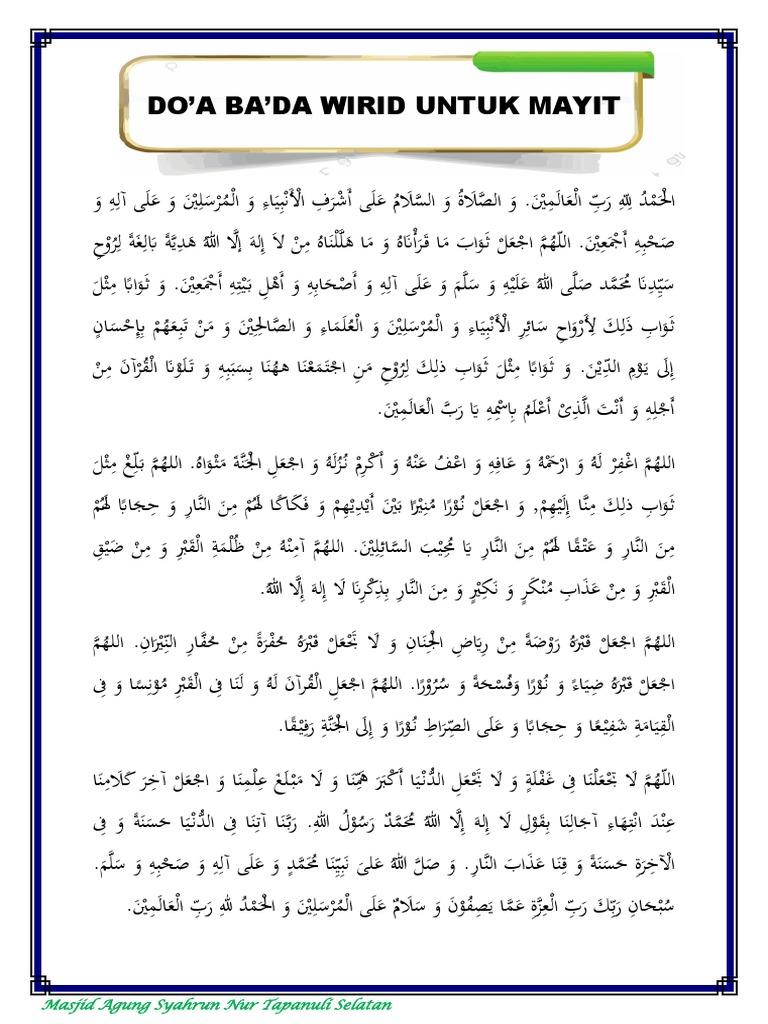 DO'A BA'DA WIRID UNTUK MAYIT
الْحَمْدُ لِلَّهِ رَبِّ الْعَالَمِيْنَ. وَ الصَّلَاةُ وَ السَّلَامُ عَلَى أَشْرَفِ الْأَنْبِيَاءِ وَ الْمُرْسَلِيْنَ وَ عَلَى آلِهِ وَ
صَحْبِهِ أَجْمَعِيْنَ. اللّهُمَّ اجْعَلْ ثَوَابَ مَا قَرَأْنَاهُ وَ مَا هَلَّلْنَاهُ مِنْ لاَ إِلهَ إِلَّا اللهُ هَدِيَّةً بَالِغَةً لِرُوْحِ
سَيِّدِنَا مُحَمَّد صَلَّى اللهُ عَلَيْهِ وَ سَلَّمَ وَ عَلَى آلِهِ وَ أَصْحَابِهِ وَ أَهْلِ بَيْتِهِ أَجْمَعِيْنَ. وَ ثَوَابًا مِثْلَ
ثَوَابِ ذلِكَ لِأَرْوَاحِ سَائِرِ الْأَنْبِيَاءِ وَ الْمُرْسَلِيْنَ وَ الْعُلَمَاءِ وَ الصَّالِحِيْنَ وَ مَنْ تَبِعَهُمْ بِإِحْسَانٍ
إِلَى يَوْمِ الدِّيْنَ. وَ ثَوَابًا مِثْلَ ثَوَابِ ذلِكَ لِرُوْحِ مَنِ اجْتَمَعْنَا ههُنَا بِسَبَبِهِ وَ تَلَوْنَا الْقُرْآنَ مِنْ
أَجْلِهِ وَ أَنْتَ الَّذِىْ أَعْلَمُ بِاسْمِهِ يَا رَبَّ الْعَالَمِيْنَ.
اللهُمَّ اغْفِرْ لَهُ وَ ارْحَمْهُ وَ عَافِهِ وَ اعْفُ عَنْهُ وَ أَكْرِمْ نُزُلَهُ وَ اجْعَلِ الْجَنَّةَ مَثْوَاهُ. اللهُمَّ بَلِّغْ مِثْلَ
ثَوَابِ ذلِكَ مِنَّا إِلَيْهِمْ, وَ اجْعَلْ نُوْرًا مُنِيْرًا بَيْنَ أَيْدِيْهِمْ وَ فَكَاكًا لَهُمْ مِنَ النَّارِ وَ حِجَابًا لَهُمْ
مِنَ النَّارِ وَ عَتْقًا لَهُمْ مِنَ النَّارِ يَا مُجِيْبَ السَّائِلِيْنَ. اللهُمَّ آمِنْهُ مِنْ ظُلْمَةِ الْقَبْرِ وَ مِنْ ضَيْقِ
الْقَبْرِ وَ مِنْ عَذَابِ مُنْكَرٍ وَ نَكِيْرٍ وَ مِنَ النَّارِ بِذِكْرِنَا لَا إِلهَ إِلَّا اللهُ.
اللهُمَّ اجْعَلْ قَبْرَهُ رَوْضَةً مِنْ رِيَاضِ الْجِنَانِ وَ لَا تَجْعَلْ قَبْرَهُ حُفْرَةً مِنْ حُفَّارِ النِّيْرَانِ. اللهُمَّ
اجْعَلْ قَبْرَهُ ضِيَاءً وَ نُوْرًا وَفُسْحَةً وَ سُرُوْرًا. اللهُمَّ اجْعَلِ الْقُرآنَ لَهُ وَ لَنَا فِى الْقَبْرِ مُوْنِسًا وَ فِى
الْقِيَامَةِ شَفِيْعًا وَ حِجَابًا وَ عَلَى الصِّرَاطِ نُوْرًا وَ إِلَى الْجَنَّةِ رَفِيْقًا.
اللّهُمَّ لَا تَجْعَلْنَا فِى غَفْلَةٍ وَ لَا تَجْعَلِ الدُّنْيَا أَكْبَرَ هَمِّنَا وَ لَا مَبْلَغَ عِلْمِنَا وَ اجْعَلْ آخِرَ كَلَامِنَا
عِنْدَ انْتِهَاءِ آجَالِنَا بِقَوْلِ لَا إِلهَ إِلَّا اللهُ مُحَمَّدٌ رَسُوْلُ اللهِ. رَبَّنَا آتِنَا فِى الدُّنْيَا حَسَنَةً وَ فِى
الْآخِرَةِ حَسَنَةً وَ قِنَا عَذَابَ النَّارِ. وَ صَلَّ اللهُ عَلىَ نَبِيِّنَا مُحَمَّدٍ وَ عَلَى آلِهِ وَ صَحْبِهِ وَ سَلَّمَ.
سُبْحَانِ رَبِّكَ رَبِّ الْعِزَّةِ عَمَّا يَصِفُوْنَ وَ سَلَامٌ عَلَى الْمُرْسَلِيْنَ وَ الْحَمْدُ للهِ رَبِّ الْعَالَمِيْنَ.
Masjid Agung Syahrun Nur Tapanuli Selatan